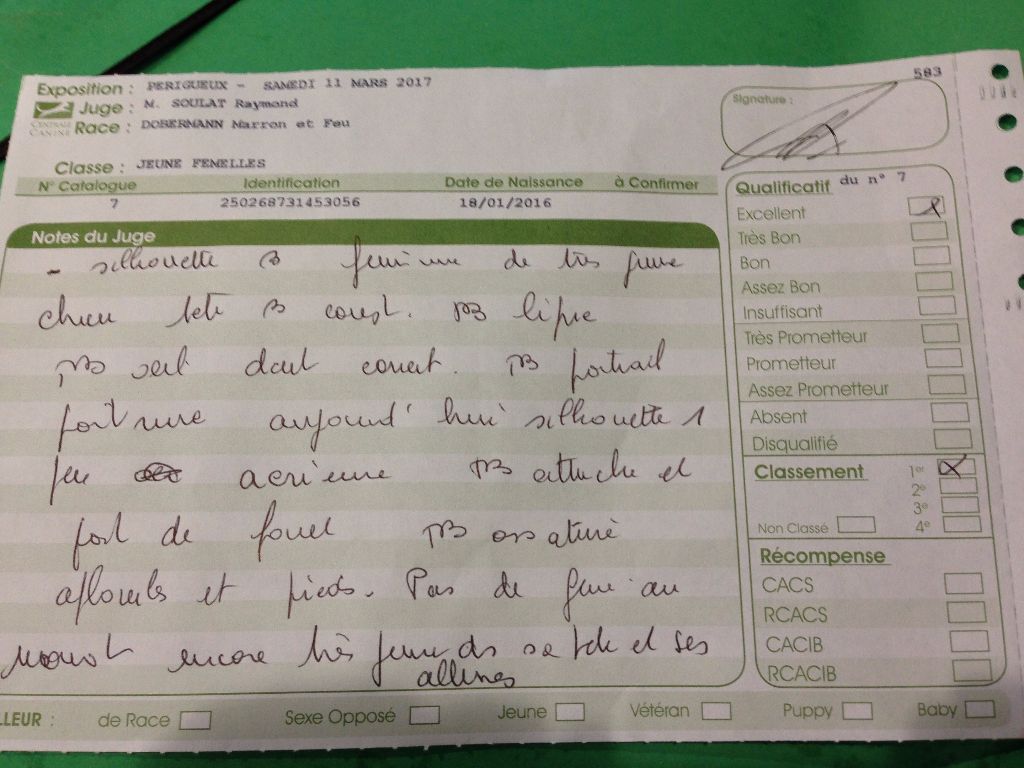 583
Exposition : PERIGUEUX - SAMEDI 11 MARS 2017
Juge : M. SOULAT Raymond
CENTRALE CANINE
Race : DOBERMANN Marron et Feu
Signature :
Classe : JEUNE FEMELLES
N° Catalogue Identification Date de Naissance à Confirmer
7 250268731453056 18/01/2016
Notes du Juge
- silhouette B de très jeune
tete B TB
TB TB
aujourd'hui silhouette 1
peu TB attache et
port de fouet TB ossature
aplombs et pieds. Pas de au
encore très jeune ds sa tete et ses
allures
Qualificatif du n° 7
Excellent X
Très Bon
Bon
Assez Bon
Insuffisant
Très Prometteur
Prometteur
Assez Prometteur
Absent
Disqualifié
Classement 1er X
2e
3e
Non Classé 4e
Récompense
CACS
RCACS
CACIB
RCACIB
LLEUR : de Race Sexe Opposé Jeune Vétéran Puppy Baby